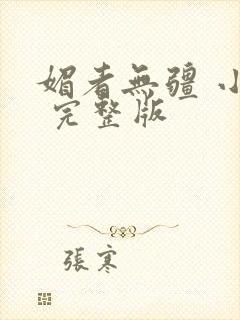 媚者無疆 小
完整版
張寒